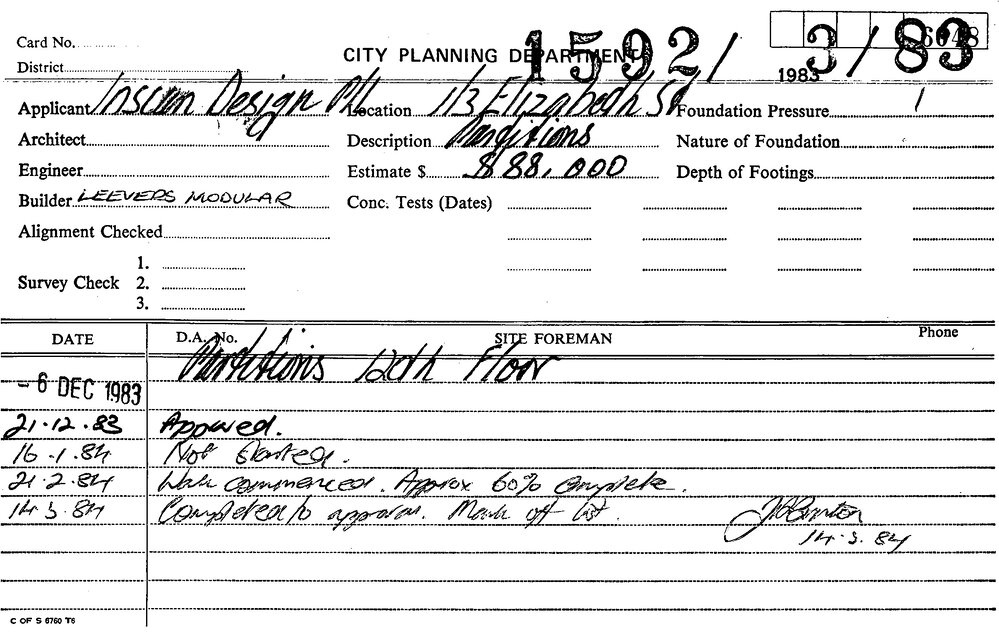 Card No.
CITY PLANNING DEPARTMENT 1592/3/83
6648
District
1983
Applicant Inscon Design P/L Location 113 Elizabeth St Foundation Pressure
Architect Description Partitions Nature of Foundation
Engineer Estimate $ $88,000 Depth of Footings
Builder LEEVERS MODULAR Conc. Tests (Dates)
Alignment Checked
1.
Survey Check 2.
3.
DATE D.A. No. SITE FOREMAN Phone
Partitions 12th Floor
- 6 DEC 1983
21.12.83 Approved.
16.1.84 Not Started.
21.2.84 Work commenced. Approx 60% complete.
14.3.84 Completed to approval. Mark off list.
14.3.84
C OF S 6760 T6